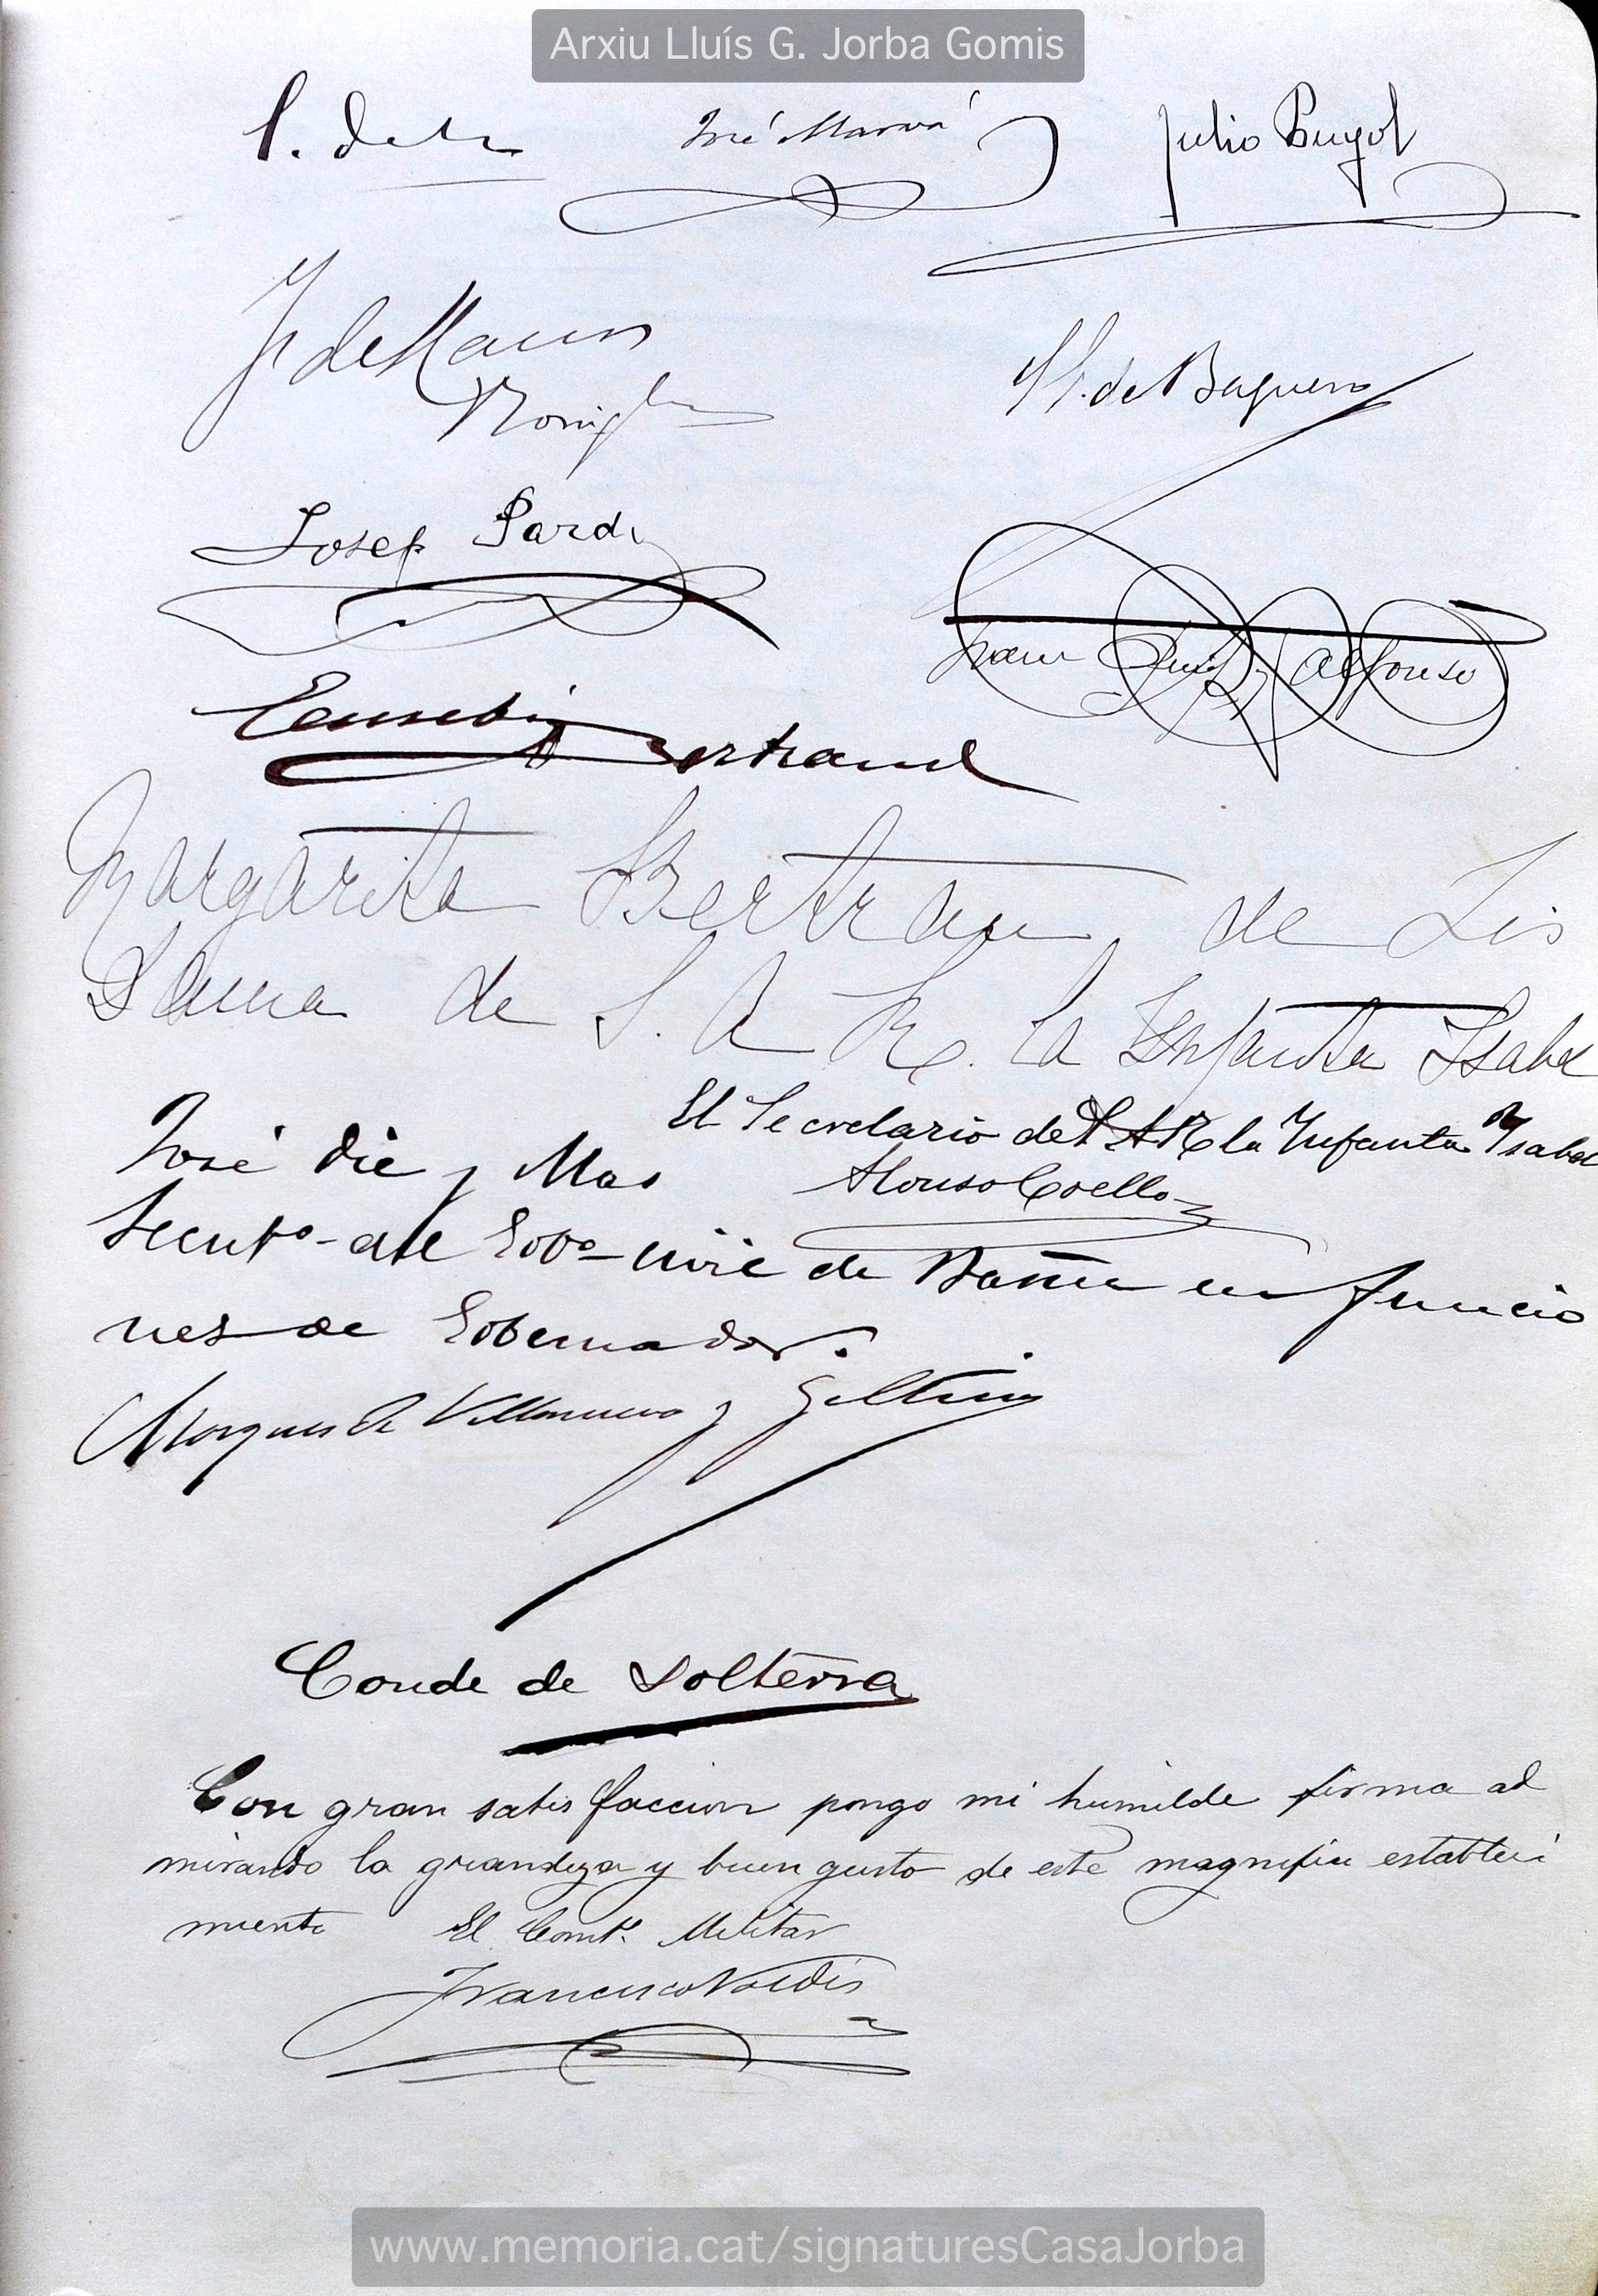 Arxiu Lluís G. Jorba Gomis
José Marvá
Julio Puyol
Josep Pardi
Eusebio Bertrand
Juan Ruiz y Alfonso
Margarita Bertran de Lis
Dama de S. A R. la Infanta Isabel
El Secretario de S A R la Infanta Dª Ysabel
Alonso Coello
José Die y Mas
Secretº del Gobº civil de Barna en funcio
nes de Gobernador.
Marques de Villanueva y Geltrú
Conde de Solterra
Con gran satisfaccion pongo mi humilde firma ad
mirando la grandeza y buen gusto de este magnifico estableci
miento
El Comte. Militar
Francisco Valdés
www.memoria.cat/signaturesCasaJorba